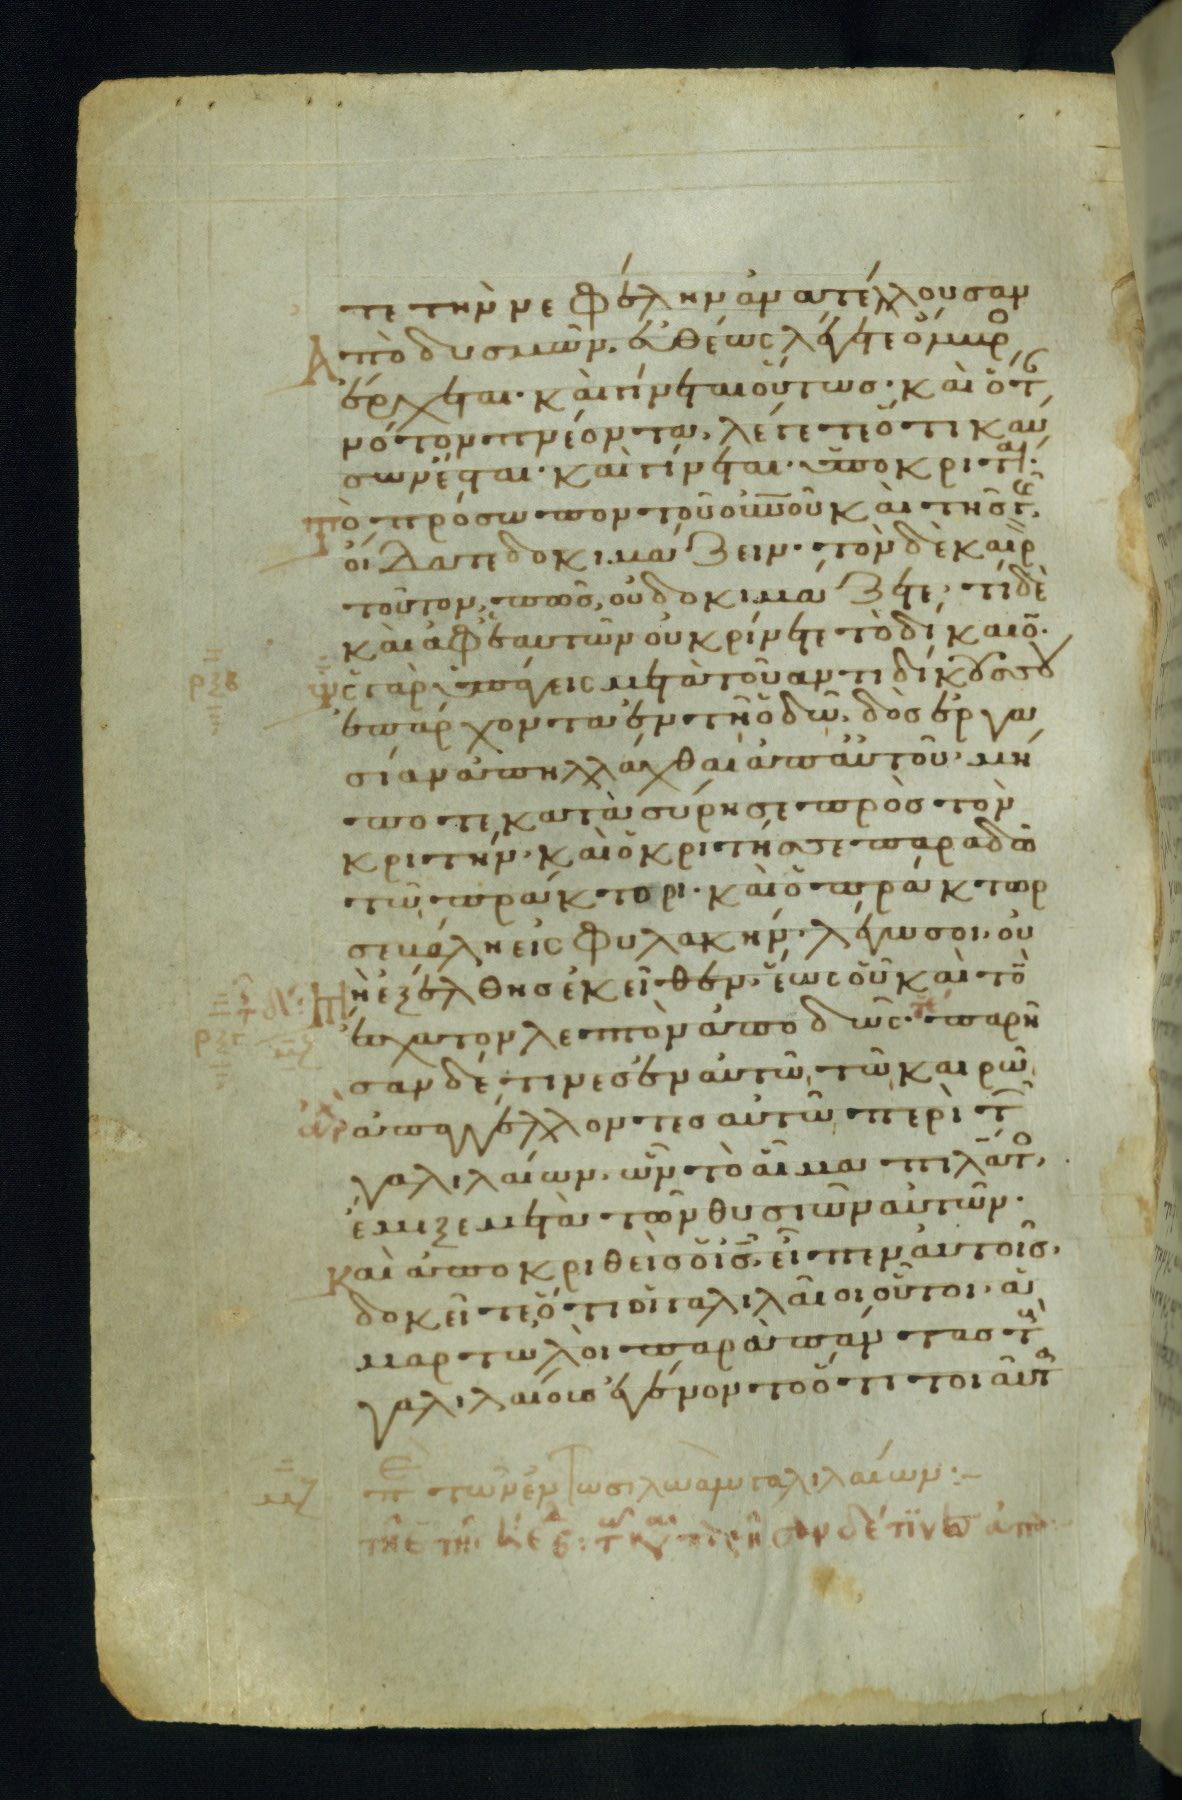 τε τὴν νεφέλην ἀνατέλλουσαν
ἀπὸ δυσμῶν. εὐθέως λέγετε ὄμβρο
ἔρχεται. καὶ γίνεται οὕτως. καὶ ὅτ
νότον πνέοντα, λέγετε ὅτι καύ
σων ἔσται. καὶ γίνεται. ὑποκριταί.
τὸ πρόσωπον τοῦ οὐνοῦ καὶ τῆς γῆς
οἴδατε δοκιμάζειν. τὸν δὲ καιρ
τοῦτον, πῶς, οὐ δοκιμάζετε; τί δὲ
καὶ ἀφ' ἑαυτῶν οὐ κρίνετε τὸ δίκαιο.
ρξβ ὡς γὰρ ὑπάγεις μετὰ τοῦ ἀντιδίκου σου
ἐπ' ἄρχοντα ἐν τῇ ὁδῷ, δὸς ἐργα
σίαν ἀπηλλάχθαι ἀπ' αὐτοῦ. μή
ποτε κατασύρη σε πρὸς τὸν
κριτήν. καὶ ὁ κριτής σε παραδῷ
τῷ πράκτορι. καὶ ὁ πράκτωρ
σε βάλῃ εἰς φυλακήν. λέγω σοι. οὐ
μὴ ἐξέλθῃς ἐκεῖθεν. ἕως οὗ καὶ τὸ
ἔσχατον λεπτὸν ἀποδῷς. παρῆ
σαν δέ τινες ἐν αὐτῷ τῷ καιρῷ
ἀπαγγέλλοντες αὐτῷ περὶ τ
γαλιλαίων. ὧν τὸ αἷμα πιλάτο
ἔμιξε μετὰ τῶν θυσιῶν αὐτῶν.
καὶ ἀποκριθεὶς ὁ ις, εἶπεν αὐτοῖς.
δοκεῖτε ὅτι οἱ γαλιλαῖοι οὗτοι. ἁ
μαρτωλοὶ παρὰ πάντας τ
γαλιλαίους ἐγένοντο ὅτι τοιαῦτ
μζ π τῶν ἐν τῷ σιλωὰμ γαλιλαίων: